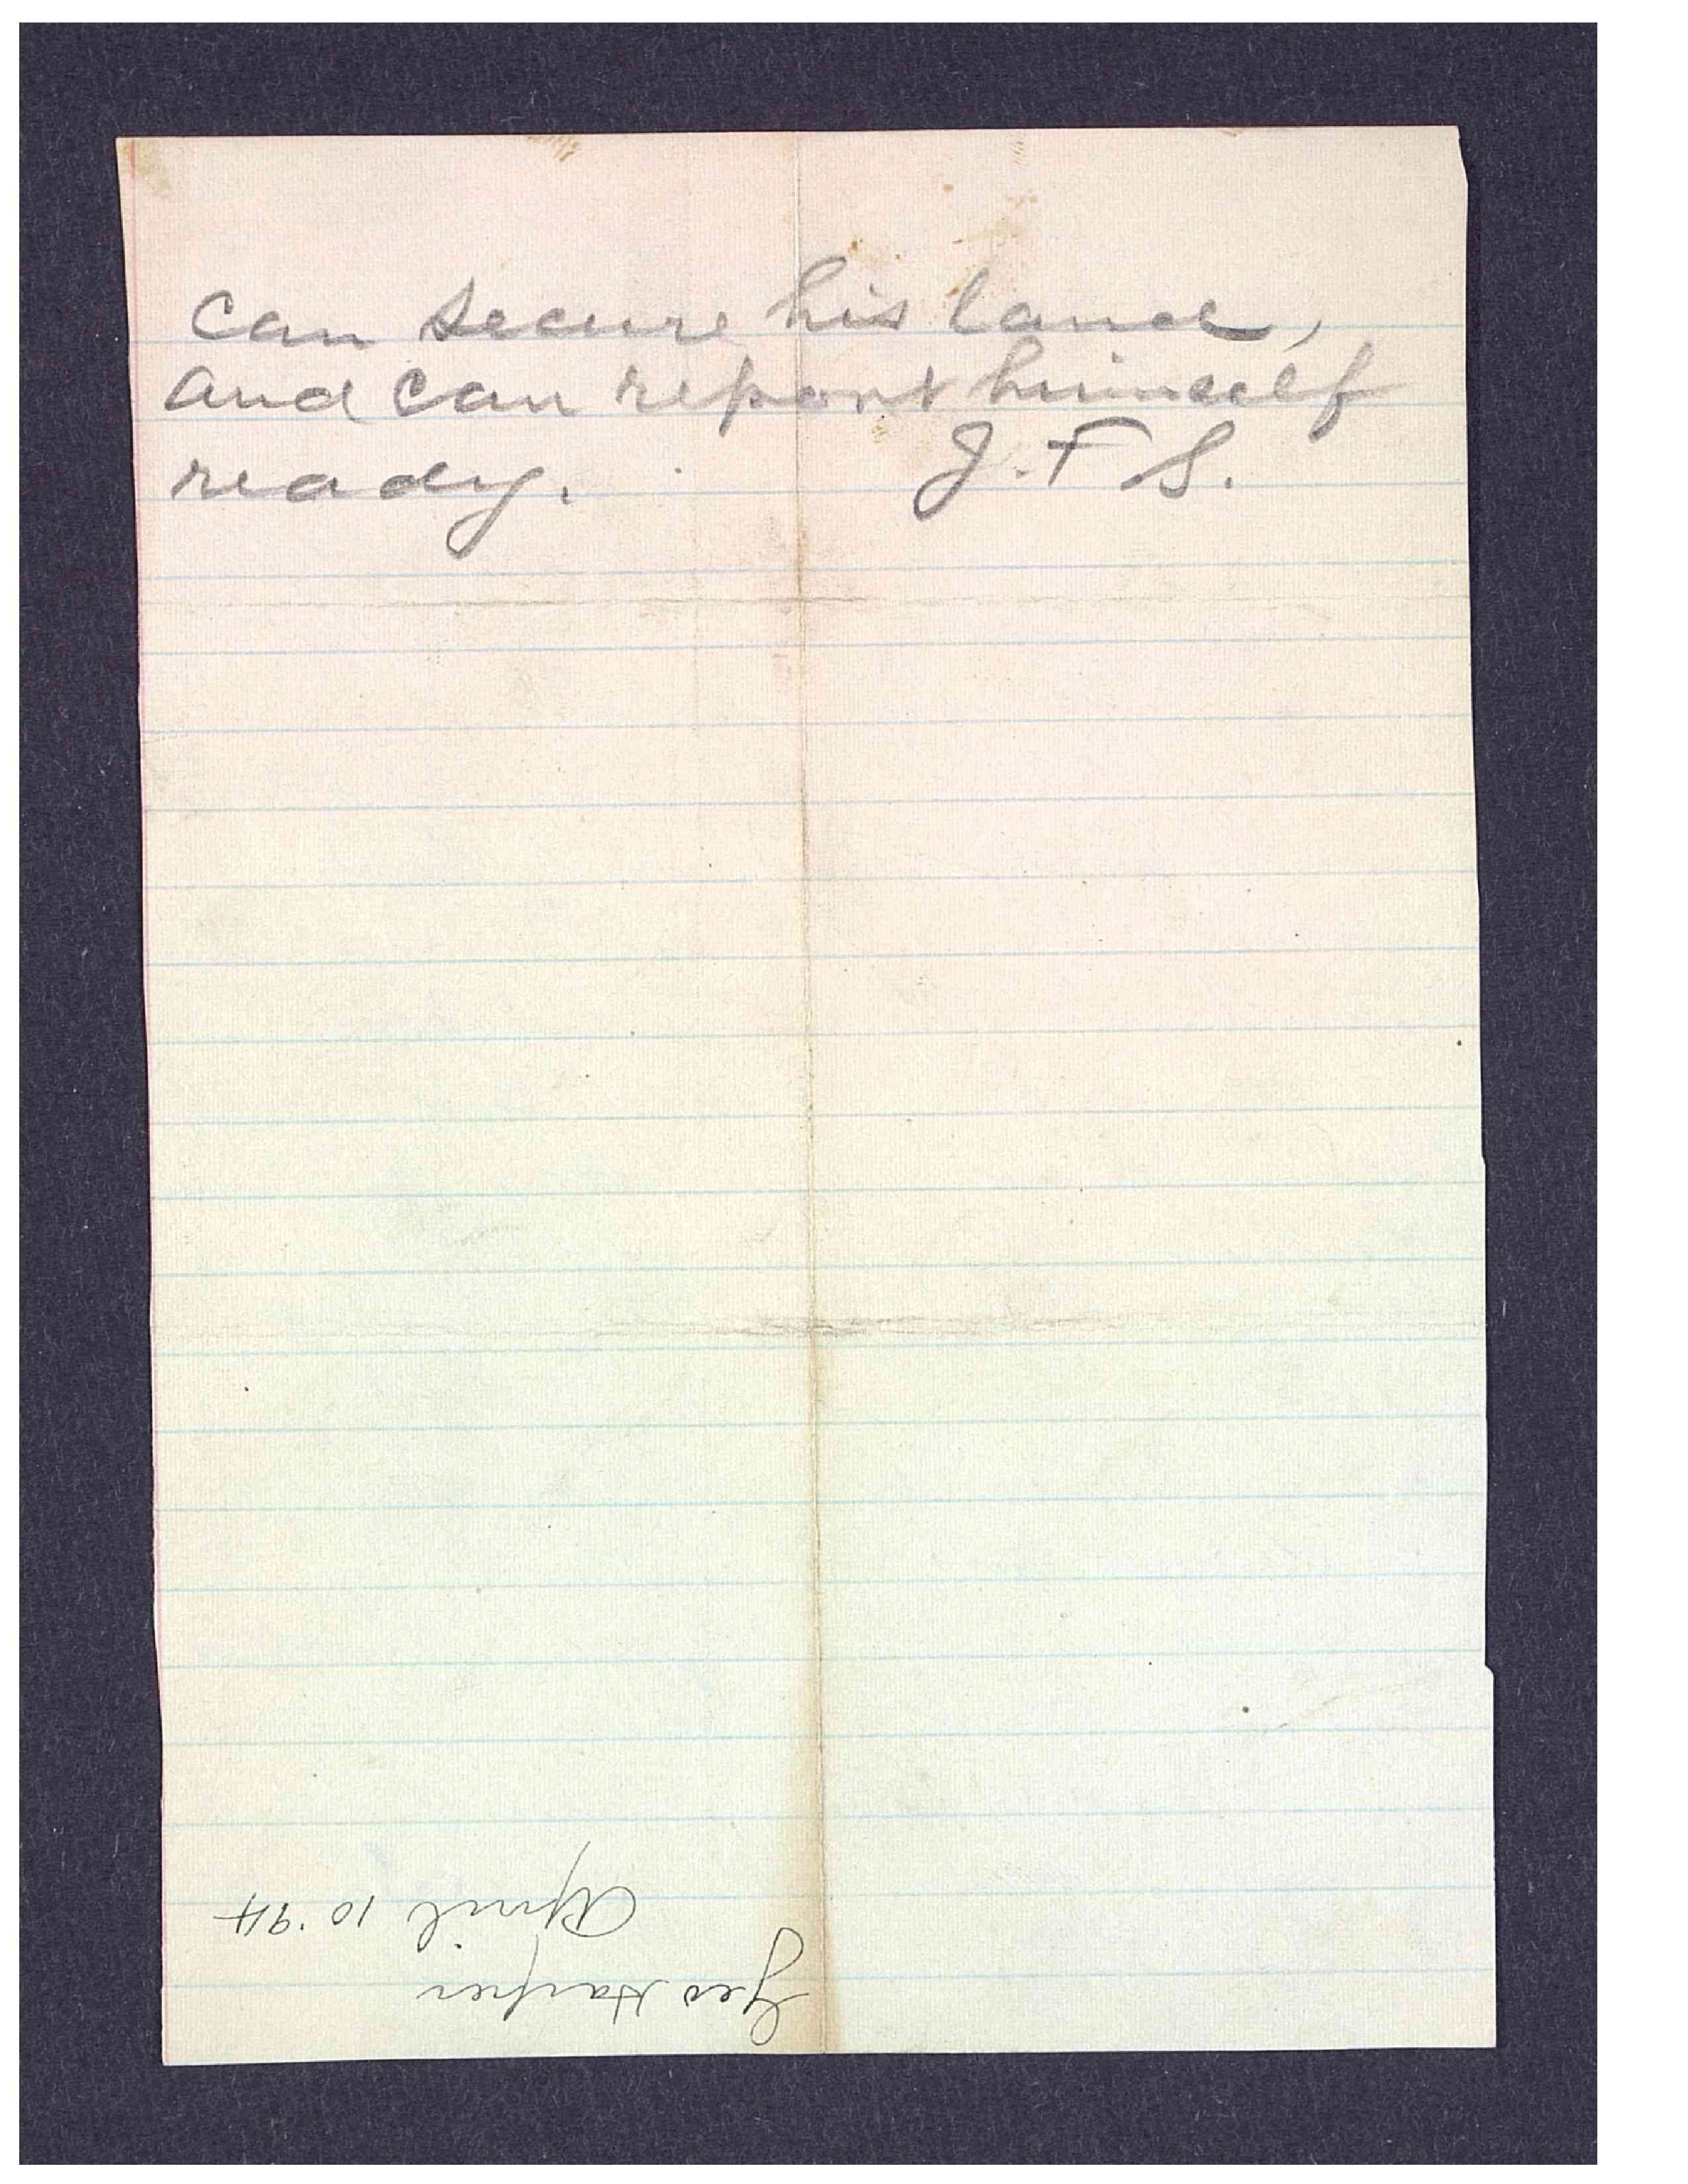 can secure his land,
and can report himself
ready. J. F S.
Geo Harper
April 10 '94